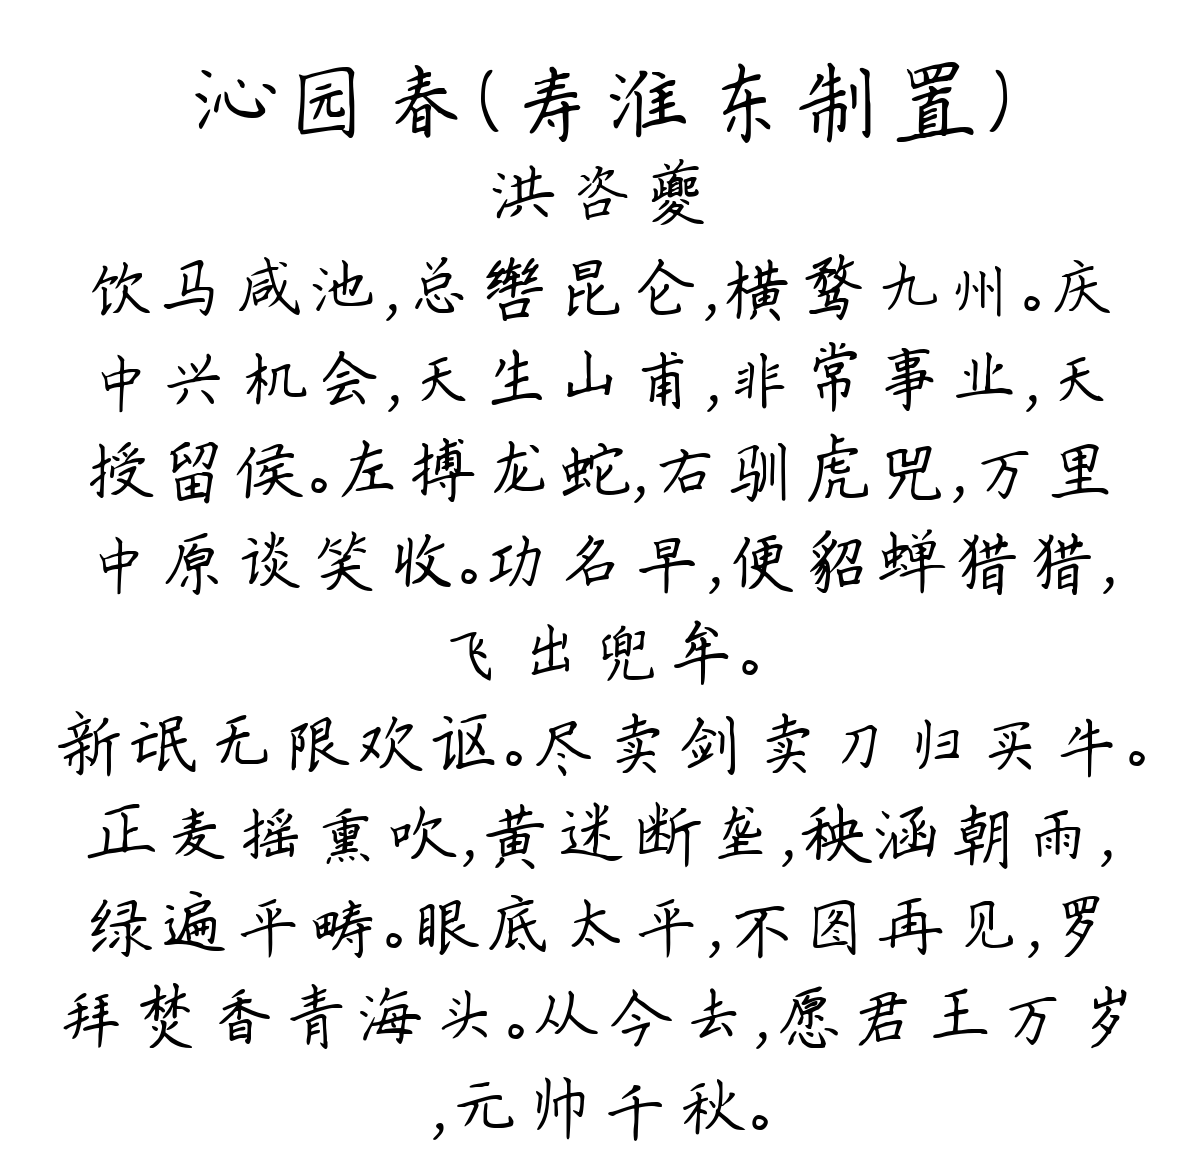 沁园春(寿淮东制置)
洪咨夔
饮马咸池,总辔昆仑,横骛九州。庆
中兴机会,天生山甫,非常事业,天
授留侯。左搏龙蛇,右驯虎兕,万里
中原谈笑收。功名早,便貂蝉猎猎,
飞出兜牟。
新氓无限欢讴。尽卖剑卖刀归买牛。
正麦摇熏吹,黄迷断垄,秧涵朝雨,
绿遍平畴。眼底太平,不图再见,罗
拜焚香青海头。从今去,愿君王万岁
,元帅千秋。